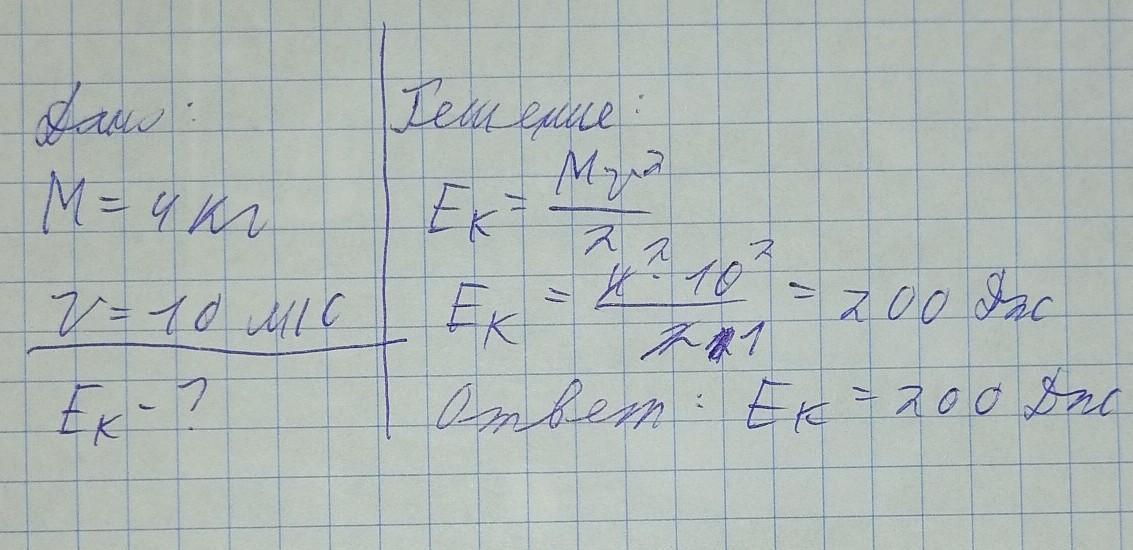 Дано:
M = 4 кг
V = 10 м/с
Eк - ?
Решение:
Eк = Mv²/2
Eк = 4² · 10²/2 1 = 200 Дж
Ответ: Eк = 200 Дж